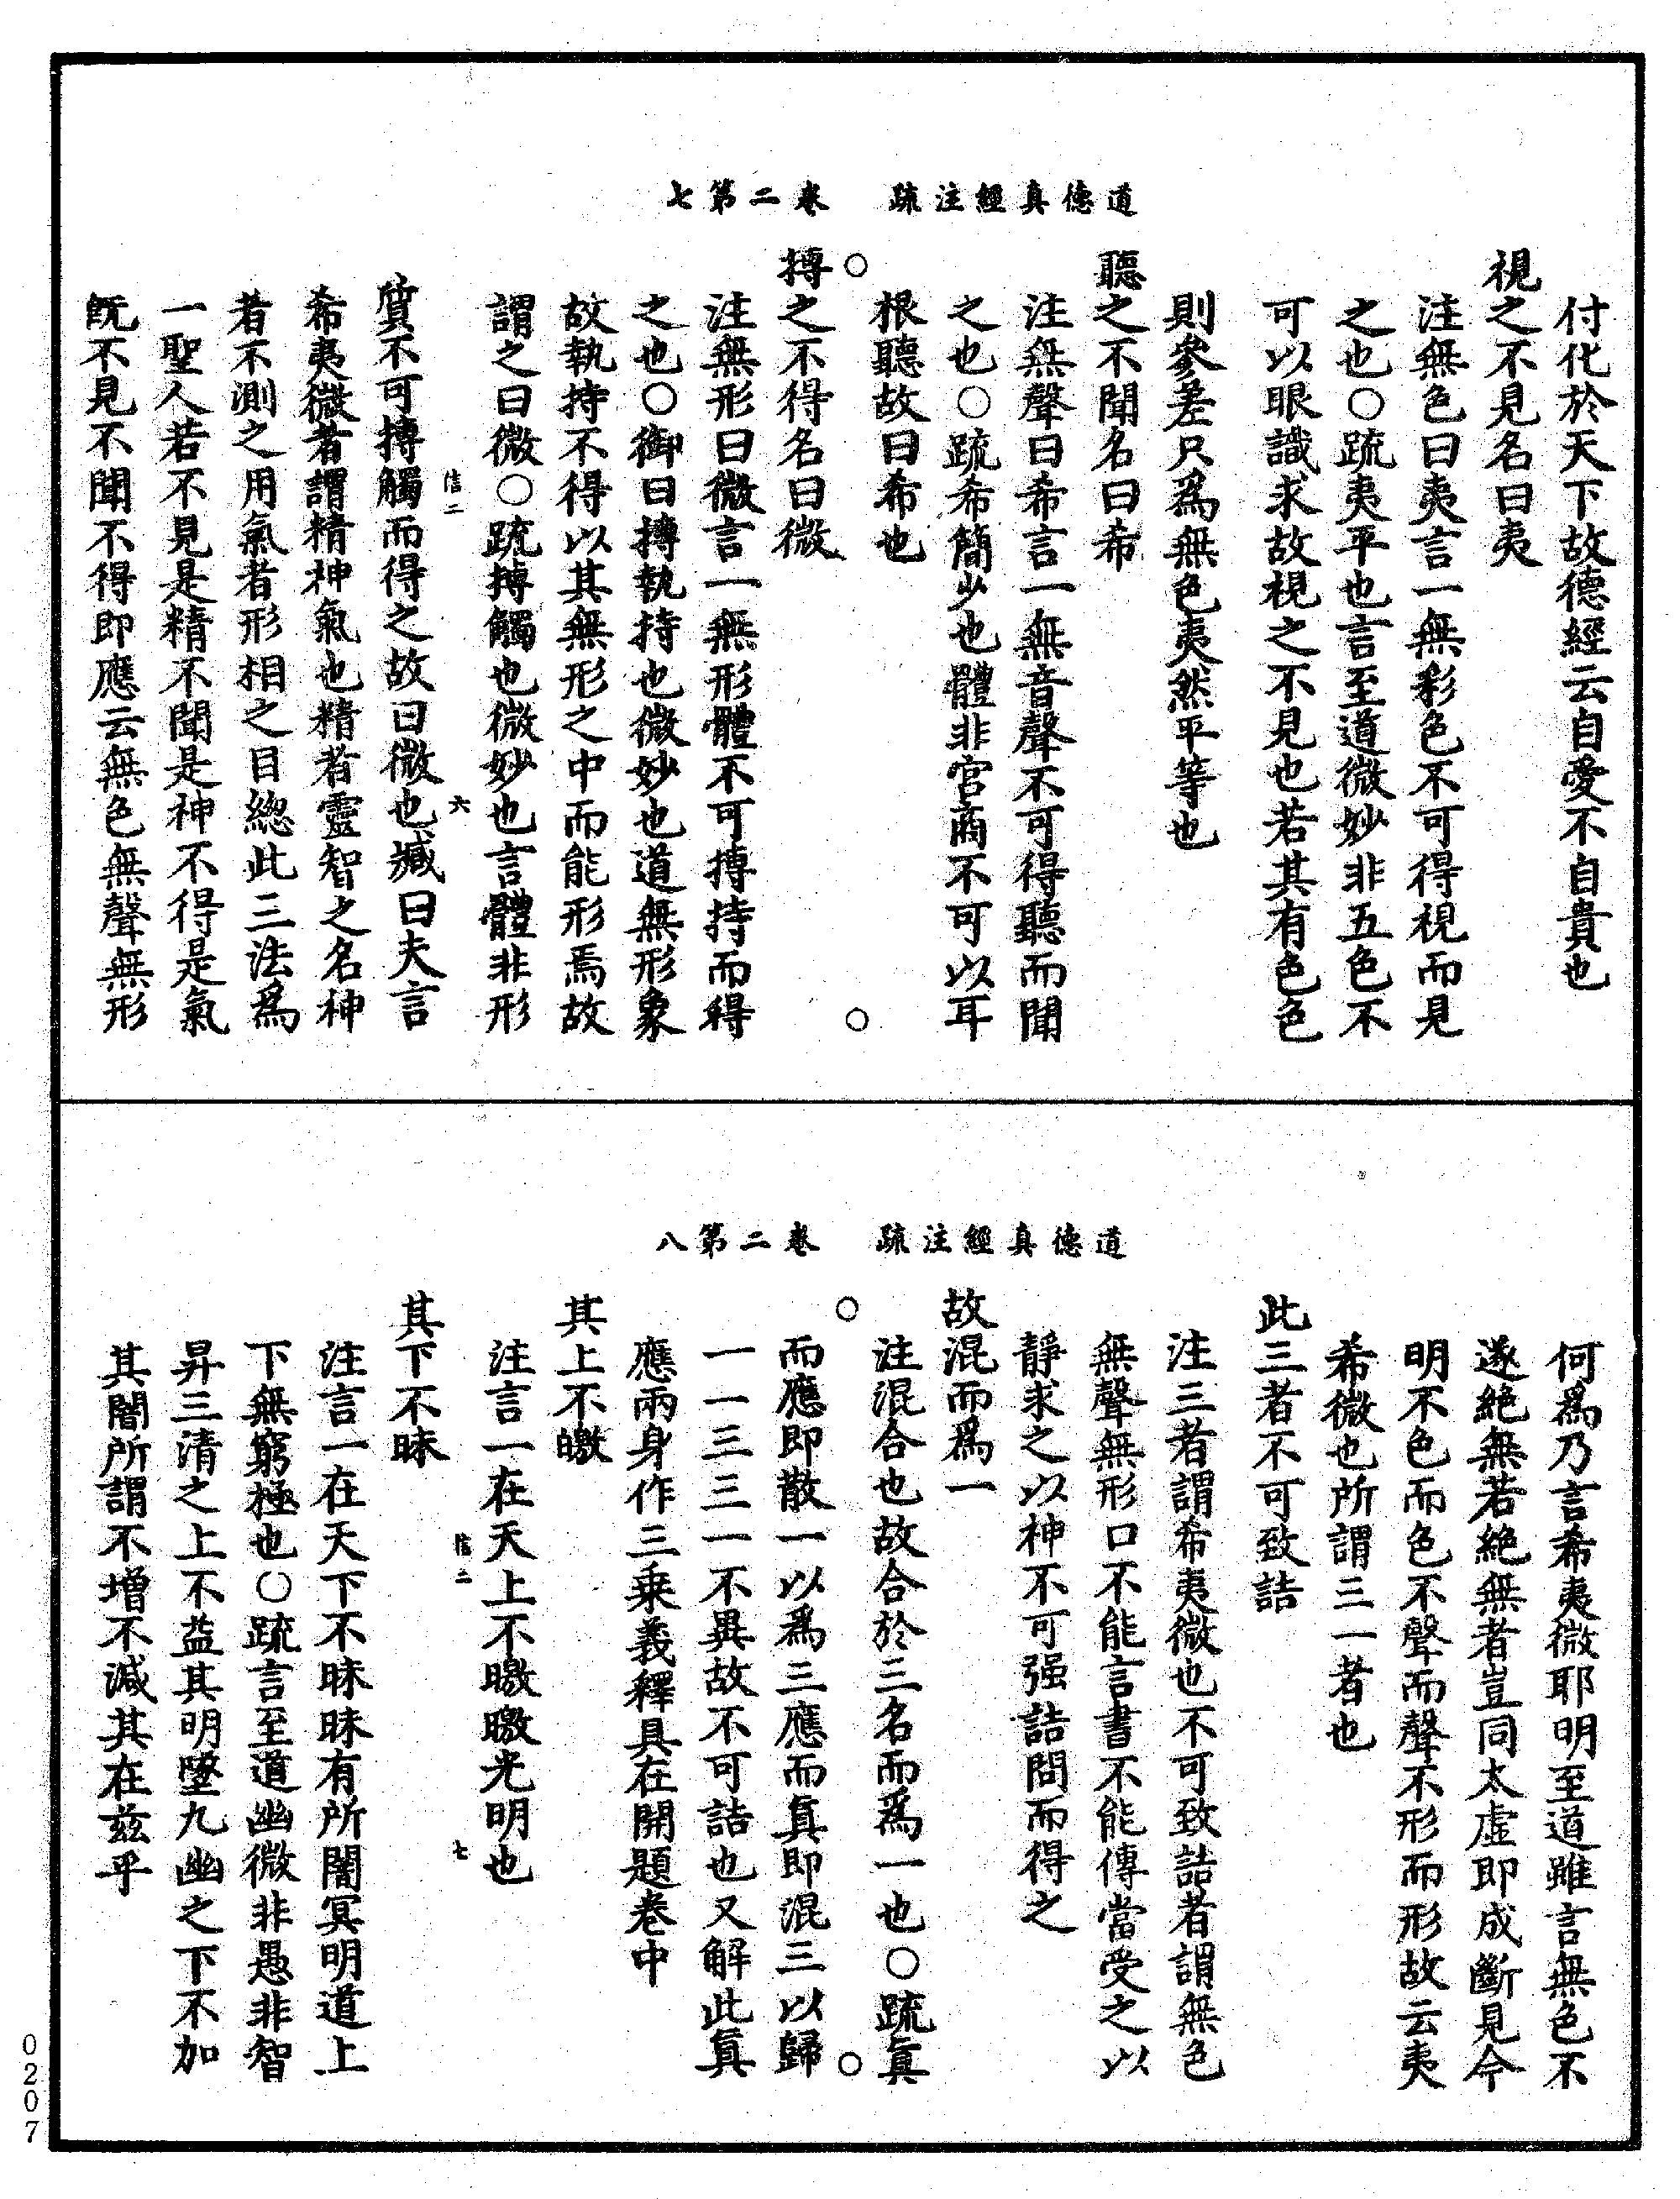 道德真經注疏　卷二第七
付化於天下故德經云自愛不自貴也
視之不見名曰夷
注無色曰夷言一無彩色不可得視而見
之也○疏夷平也言至道微妙非五色不
可以眼識求故視之不見也若其有色色
則參差只爲無色夷然平等也
聽之不聞名曰希
注無聲曰希言一無音聲不可得聽而聞
之也○疏希簡少也體非宮商不可以耳
根聽故曰希也
○　○
搏之不得名曰微
注無形曰微言一無形體不可搏持而得
之也○御曰搏執持也微妙也道無形象
故執持不得以其無形之中而能形焉故
謂之曰微○疏搏觸也微妙也言體非形
信二　六
質不可搏觸而得之故曰微也臧曰夫言
希夷微者謂精神氣也精者靈智之名神
者不測之用氣者形相之目總此三法爲
一聖人若不見是精不聞是神不得是氣
旣不見不聞不得即應云無色無聲無形
道德真經注疏　卷二第八
何爲乃言希夷微耶明至道雖言無色不
遂絕無若絕無者豈同太虛即成斷見今
明不色而色不聲而聲不形而形故云夷
希微也所謂三一者也
此三者不可致詰
注三者謂希夷微也不可致詰者謂無色
無聲無形口不能言書不能傳當受之以
靜求之以神不可强詰問而得之
故混而爲一
注混合也故合於三名而爲一也○疏眞
○　○
而應即散一以爲三應而眞即混三以歸
一一三三一不異故不可詰也又解此眞
應兩身作三乘義釋具在開題卷中
其上不皦
注言一在天上不曒曒光明也
信二　七
其下不昧
注言一在天下不昧昧有所闇冥明道上
下無窮極也○疏言至道幽微非愚非智
昇三清之上不益其明墜九幽之下不加
其闇所謂不增不減其在茲乎
0207